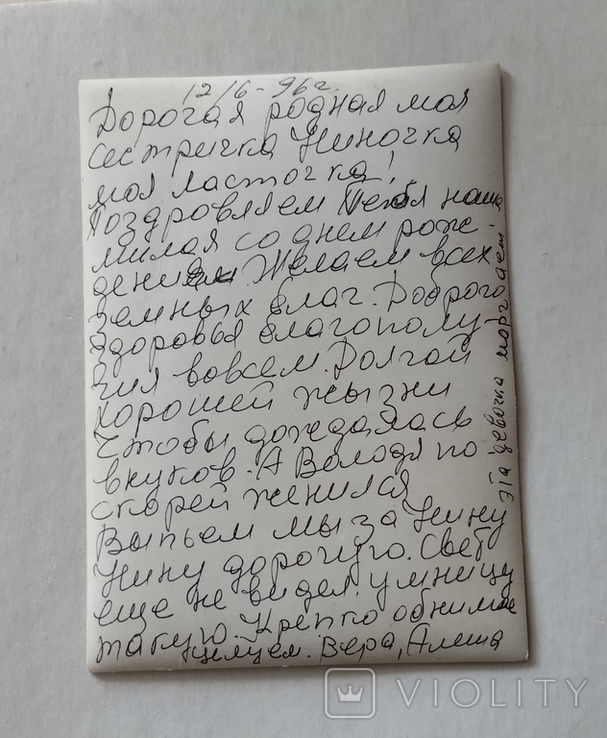 12/6-96г.
Дорогая родная моя
сестричка Ниночка
моя ласточка!
Поздравляем Тебя наша
милая со днем рож-
дением. Желаем всех
земных благ. Доброго
здоровья благополу-
чия вовсем. Долгой
хорошей жызни
Чтобы дождалась
внуков. А Володя по
скорей женился
Выпьем мы за Нину
Нину дорогую. Свет
еще не видел умницу
такую. Крепко обнимае
целуем. Вера, Алеша
эта девочка моргает!
VIOLITY